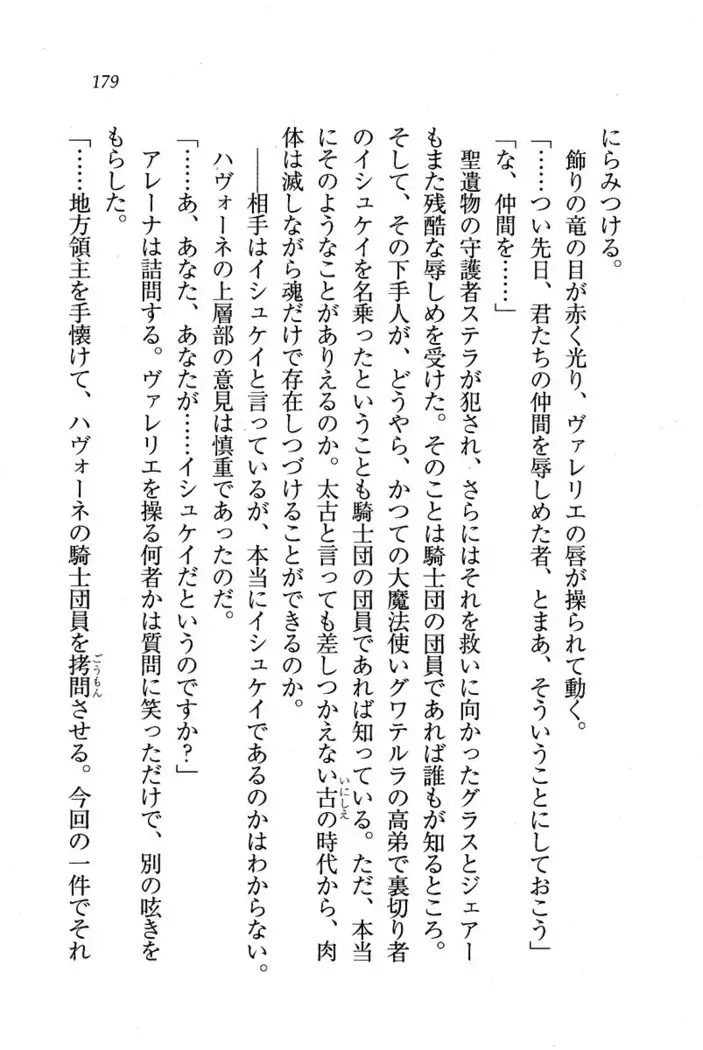 179
にらみつける。
飾りの竜の目が赤く光り、ヴァレリエの唇が操られて動く。
「……つい先日、君たちの仲間を辱しめた者、とまあ、そういうことにしておこう」
「な、仲間を……」
聖遺物の守護者ステラが犯され、さらにはそれを救いに向かったグラスとジェアー
もまた残酷な辱しめを受けた。そのことは騎士団の団員であれば誰もが知るところ。
そして、その下手人が、どうやら、かつての大魔法使いグワテルラの高弟で裏切り者
のイシュケイを名乗ったということも騎士団の団員であれば知っている。ただ、本当
にそのようなことがありえるのか。太古と言っても差しつかえない古の時代から、肉
体は滅しながら魂だけで存在しつづけることができるのか。
――相手はイシュケイと言っているが、本当にイシュケイであるのかはわからない。
ハヴォーネの上層部の意見は慎重であったのだ。
「……あ、あなた、あなたが……イシュケイだというのですか？」
アレーナは詰問する。ヴァレリエを操る何者かは質問に笑っただけで、別の呟きを
もらした。
「……地方領主を手懐けて、ハヴォーネの騎士団員を拷問させる。今回の一件でそれ
いにしえ
ごうもん